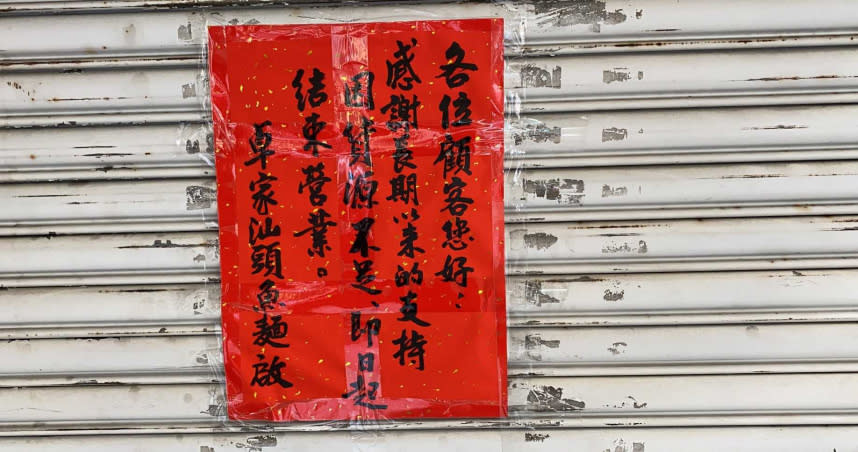 各位顧客您好：
感謝長期以來的支持
因貨源不足、即日起
結束營業。
卓家汕頭魚麵啟